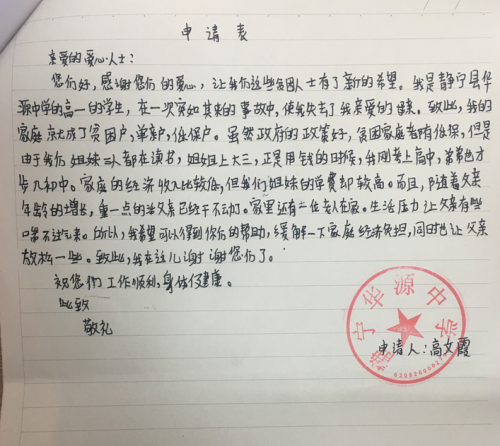 申请表
亲爱的爱心人士：
您们好，感谢您们的爱心，让我们这些贫困人士有了新的希望。我是静宁县华
源中学的高一的学生，在一次突如其来的事故中，使我失去了我亲爱的妈妈。致此，我的
家庭就成了贫困户，单亲户，低保户。虽然政府的政策好，贫困家庭都有低保，但是
由于我们姐妹三人都在读书，姐姐上大三，正是用钱的时候，我刚考上高中，弟弟也才
步入初中。家庭的经济收入比较低，但我们姐妹的学费却较高。而且，随着父亲
年龄的增长，重一点的活父亲已经干不动了。家里还有二位老人在家。生活压力让父亲有些
喘不过气来。所以，我希望可以得到你们的帮助，缓解一下家庭经济负担，同时也让父亲
放松一些。致此，我在这儿谢谢您们了。
祝您们工作顺利，身体健康。
此致
敬礼
静宁华源中学
申请人：高文霞